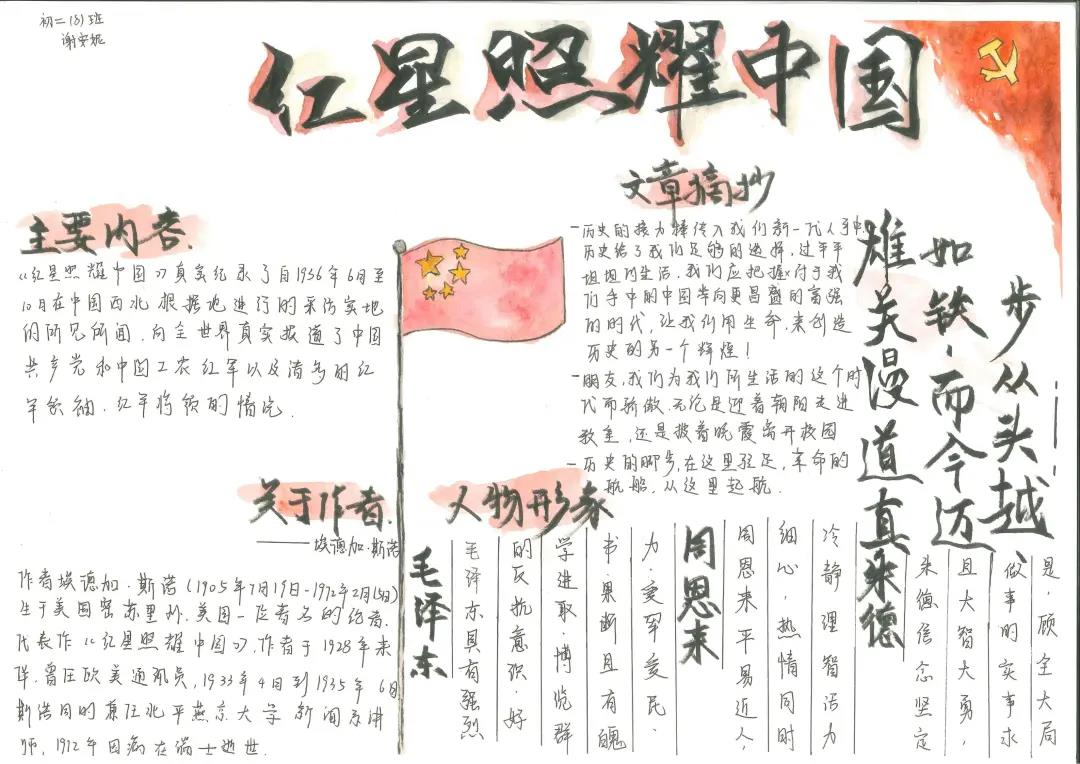 初二(8)班
谢安妮
红星照耀中国
主要内容.
《红星照耀中国》真实纪录了自1936年6月至
10月在中国西北根据地进行的采访实地
的所见所闻,向全世界真实报道了中国
共产党和中国工农红军以及许多的红
军领袖.红军将领的情况.
文章摘抄
-历史的接力棒传入我们新一代人手中,
历史给了我们足够的选择,过平平
坦坦的生活,我们应把握x付于我
们手中的中国学向更昌盛的富强
的时代,让我们用生命,来创造
历史的另一个辉煌!
-朋友,我们为我们所生活的这个时
代而骄傲.无论是迎着朝阳走进
教室,还是披着晚霞离开校园
-历史的脚步,在这里驻足,革命的
航船,从这里起航.
雄关漫道真
如铁,而今迈
步从头越.
关于作者.
——埃德加·斯诺
作者埃德加·斯诺(1905年7月19日-1972年2月15日)
生于美国密苏里州.美国一位著名的记者.
代表作《红星照耀中国》.作者于1928年来
华.曾任欧美通讯员,1933年4月到1935年6月
斯诺同时兼任北平燕京大学新闻系讲
师,1972年因病在瑞士逝世.
人物形象
毛泽东
毛泽东具有强烈
的反抗意识.好
学进取.博览群
书果断且有魄
力.爱军爱民.
周恩来
周恩来平易近人,
细心,热情同时
冷静理智活力
朱德
朱德信念坚定
且大智大勇,
做事的实事求
是,顾全大局